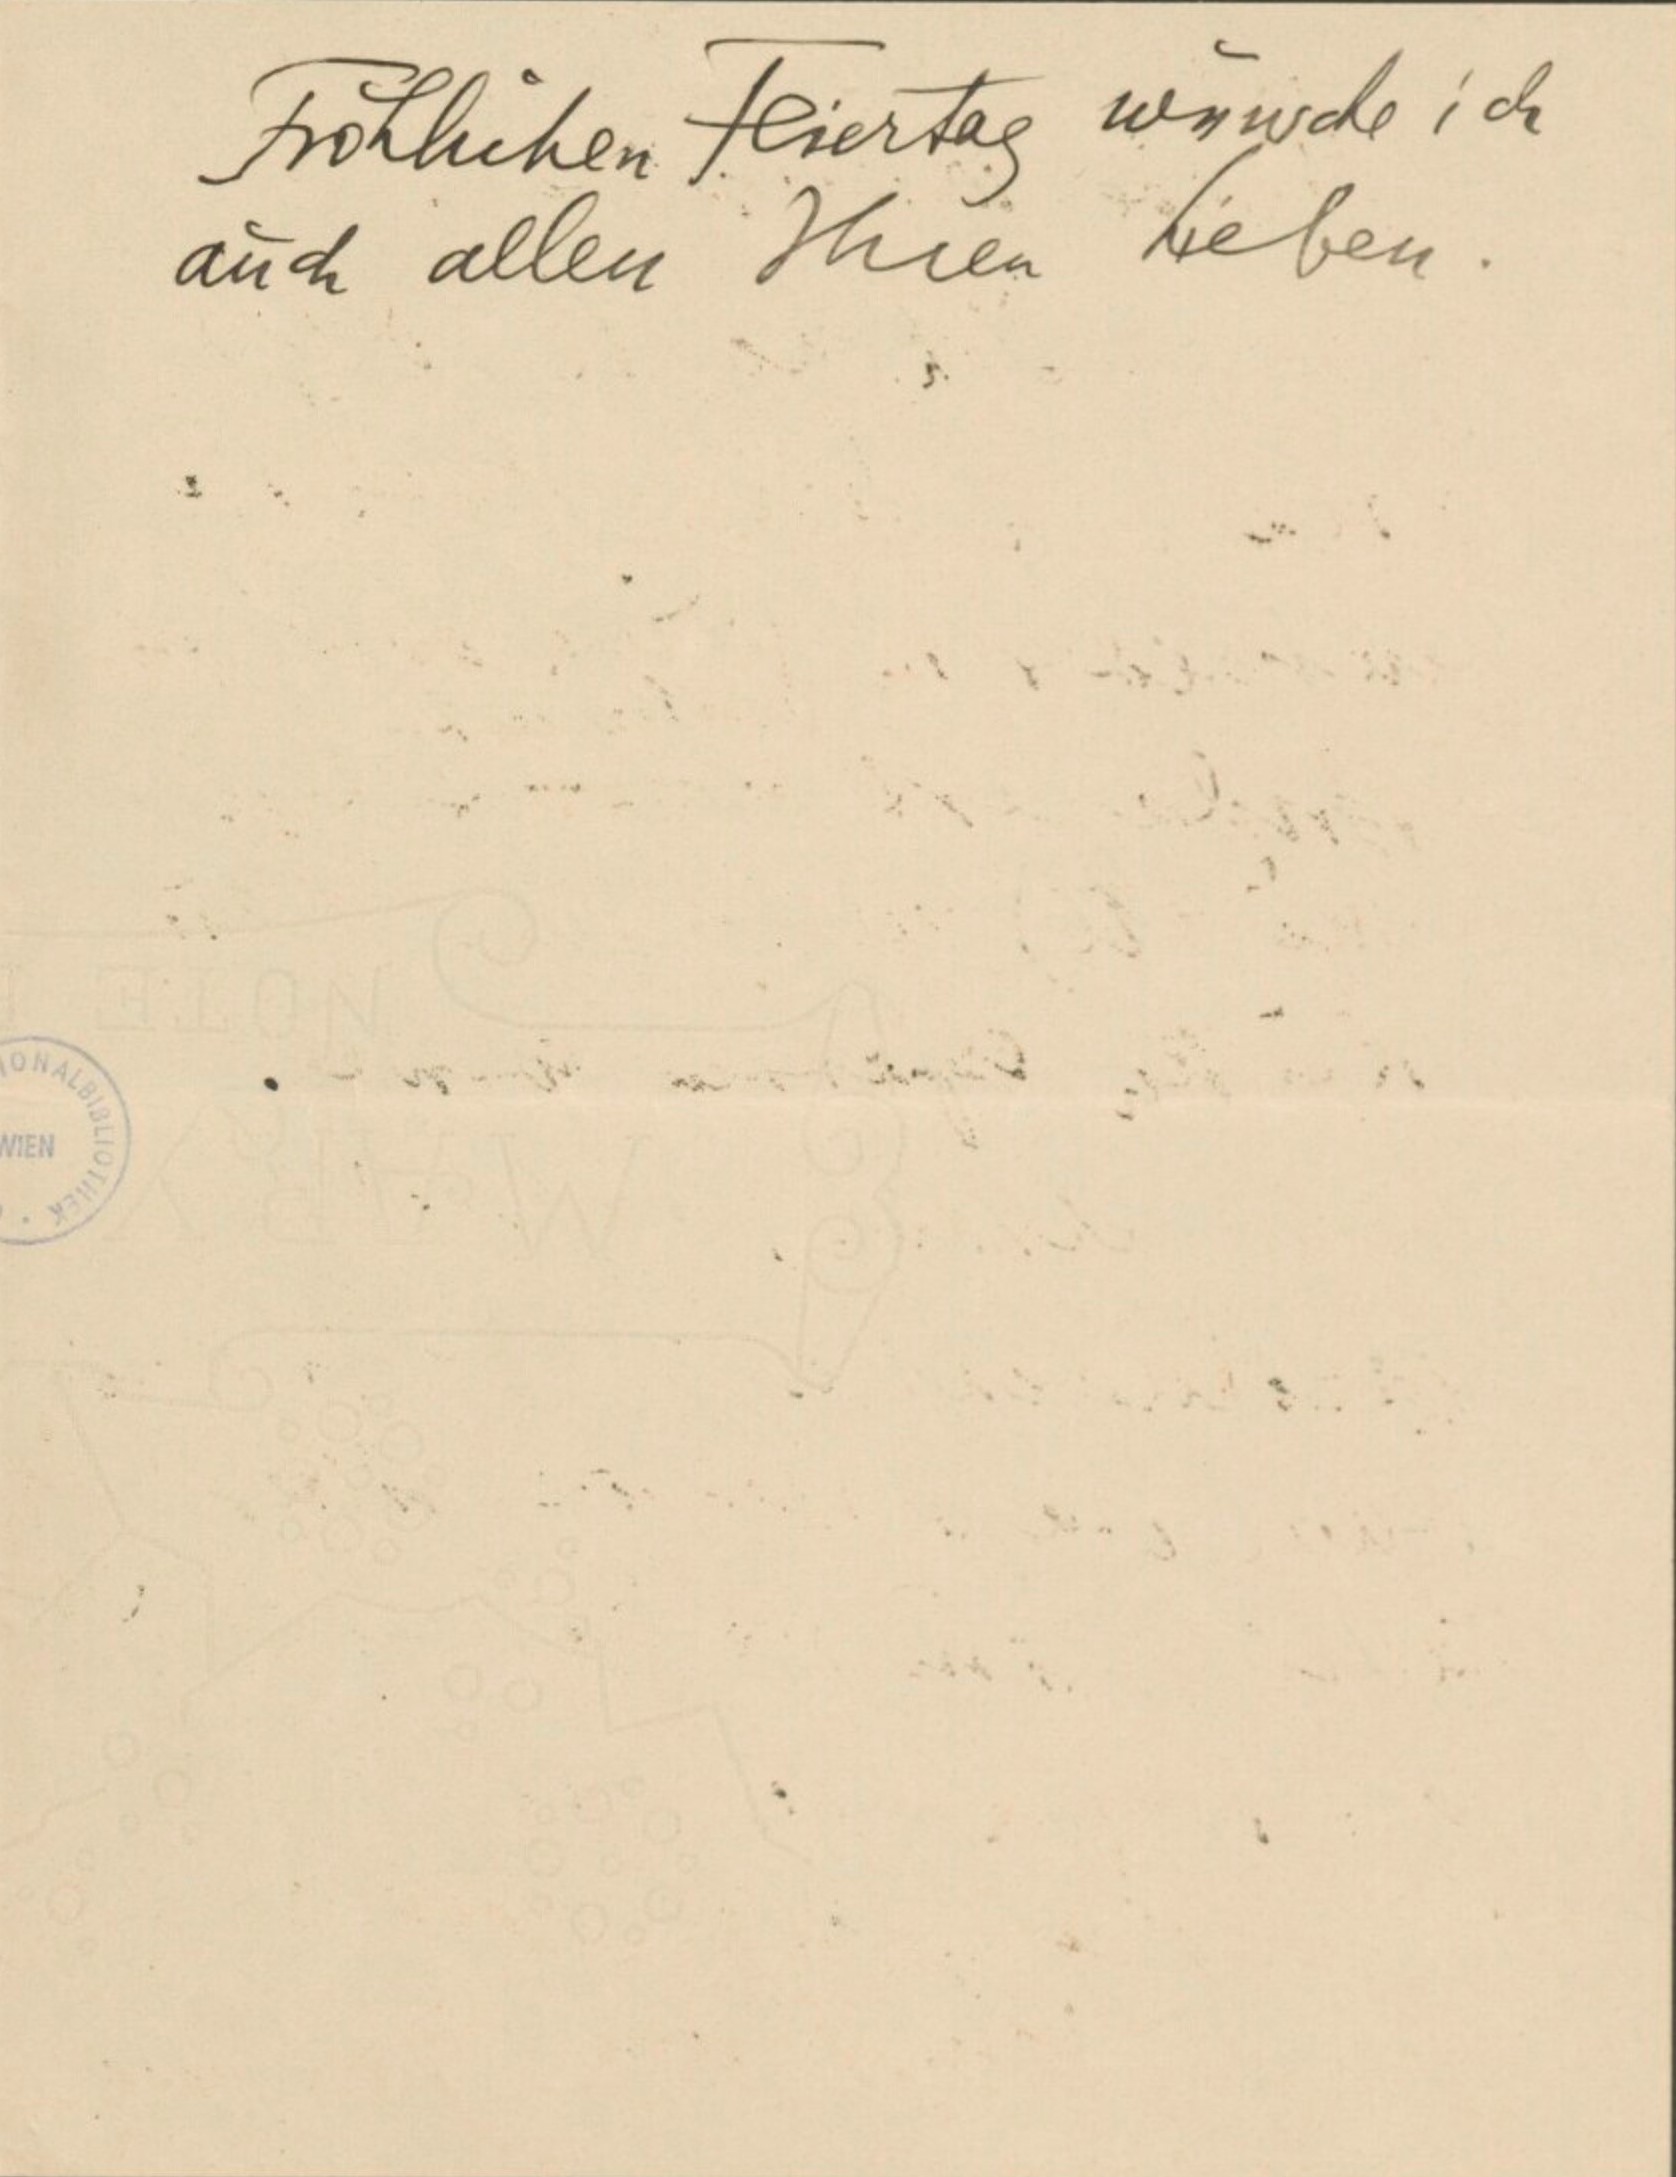 Fröhlichen Feiertag wünsche ich
auch allen Ihren Lieben.
NOTE
IONALBIBLIOTHEK
WIEN